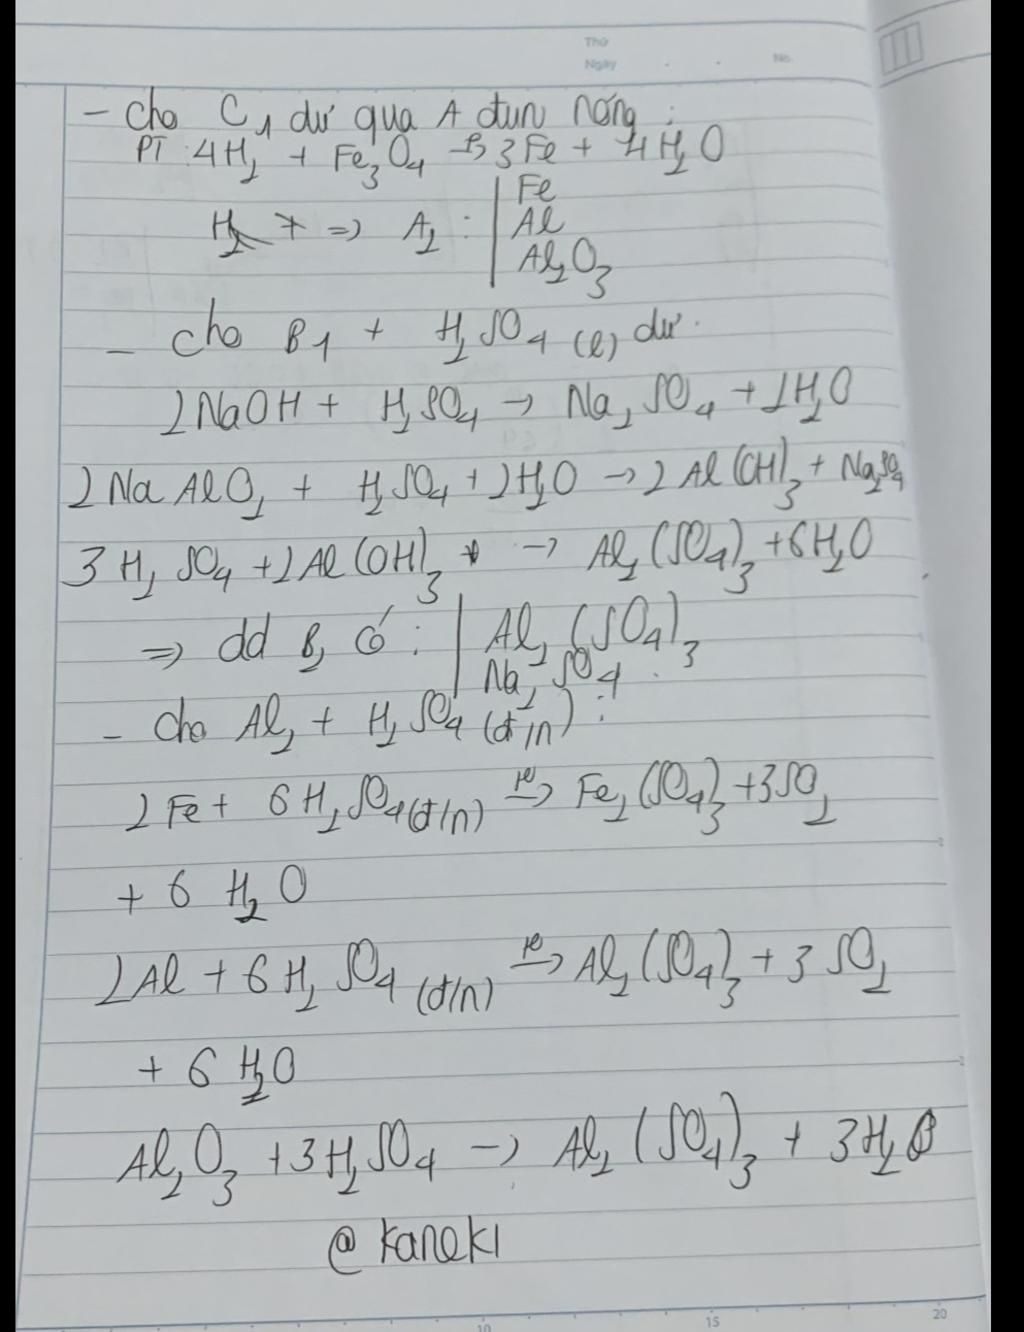 Thứ
Ngày
No.
- Cho C1 dư qua A đun nóng :
PT 4H2 + Fe3O4 -to> 3Fe + 4H2O
=> A2 : | Fe
Al
Al2O3
- cho B1 + H2SO4 (l) dư.
2NaOH + H2SO4 → Na2SO4 + 2H2O
2NaAlO2 + H2SO4 + 2H2O → 2Al(OH)3 + Na2SO4
3H2SO4 + 2Al(OH)3 → Al2(SO4)3 + 6H2O
=> dd B2 có : | Al2(SO4)3
Na2SO4
- Cho Al2 + H2SO4 (đ/n) :
2Fe + 6H2SO4(đ/n) -to> Fe2(SO4)3 + 3SO2
+ 6 H2O
2Al + 6H2SO4 (đ/n) -to> Al2(SO4)3 + 3SO2
+ 6 H2O
Al2O3 + 3H2SO4 → Al2(SO4)3 + 3H2O
@ kaneki
10 15 20